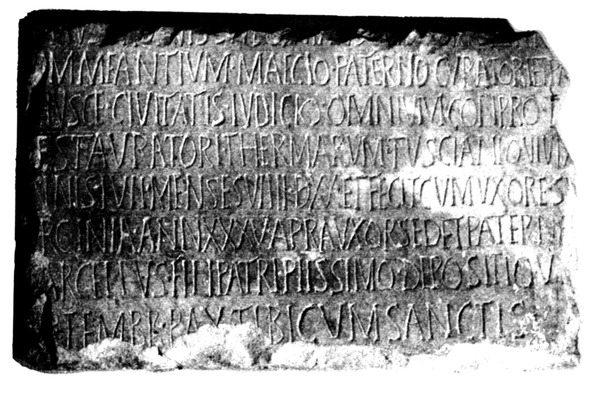 OMMEANTIVM·MAECIO·PATERNO CVRATORI ET PA
IVSCE·CIVITATIS·IVDICIO·OMNIVM COMPRO
ESTAVRATORI THERMARVM·TVSCIANI QVI VIX
NNIS·LVII·MENSES VIIII·D XV ET FECIT CVM VXORE S
ANN XXXV APRA VXOR SED ET PATERN
FILI PATRI PIISSIMO·DEPOSITIO V
PTEMBR·PAX TIBI CVM SANCTIS